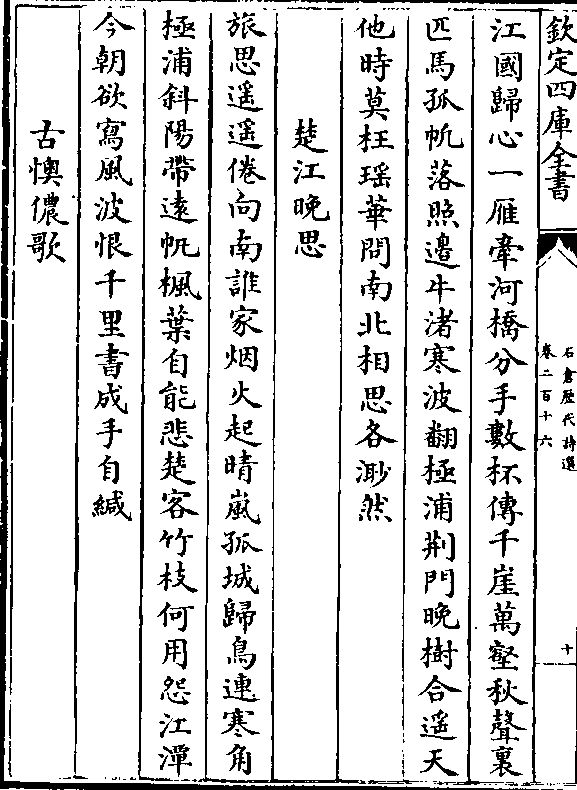 欽定四庫全書
石倉歷代詩選
卷二百十六
十
江國歸心一雁牽河橋分手數杯傳千崖萬壑秋聲裏
匹馬孤帆落照邊牛渚寒波翻極浦荆門晚樹合遥天
他時莫枉瑶華問南北相思各渺然
楚江晚思
旅思遥遥倦向南誰家烟火起晴嵐孤城歸鳥連寒角
極浦斜陽帶遠帆楓葉自能悲楚客竹枝何用怨江潭
今朝欲寫風波恨千里書成手自緘
古懊儂歌